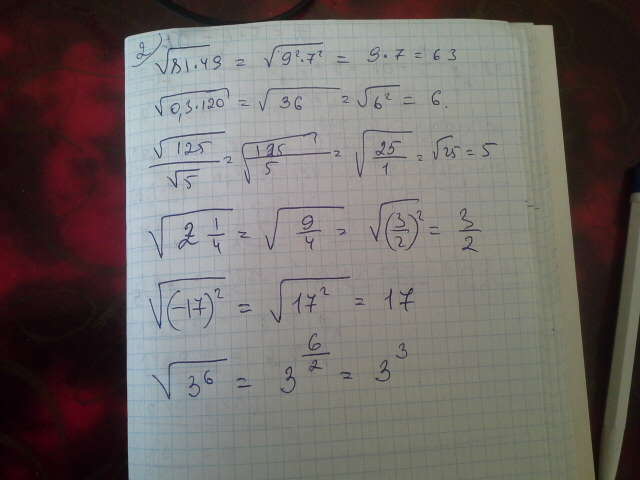 2) √81·49 = √9²·7² = 9·7 = 63
√0,3·120 = √36 = √6² = 6.
√125/√5 = √125/5 = √25/1 = √25 = 5
√2 1/4 = √9/4 = √(3/2)² = 3/2
√(-17)² = √17² = 17
√3⁶ = 3^(6/2) = 3³